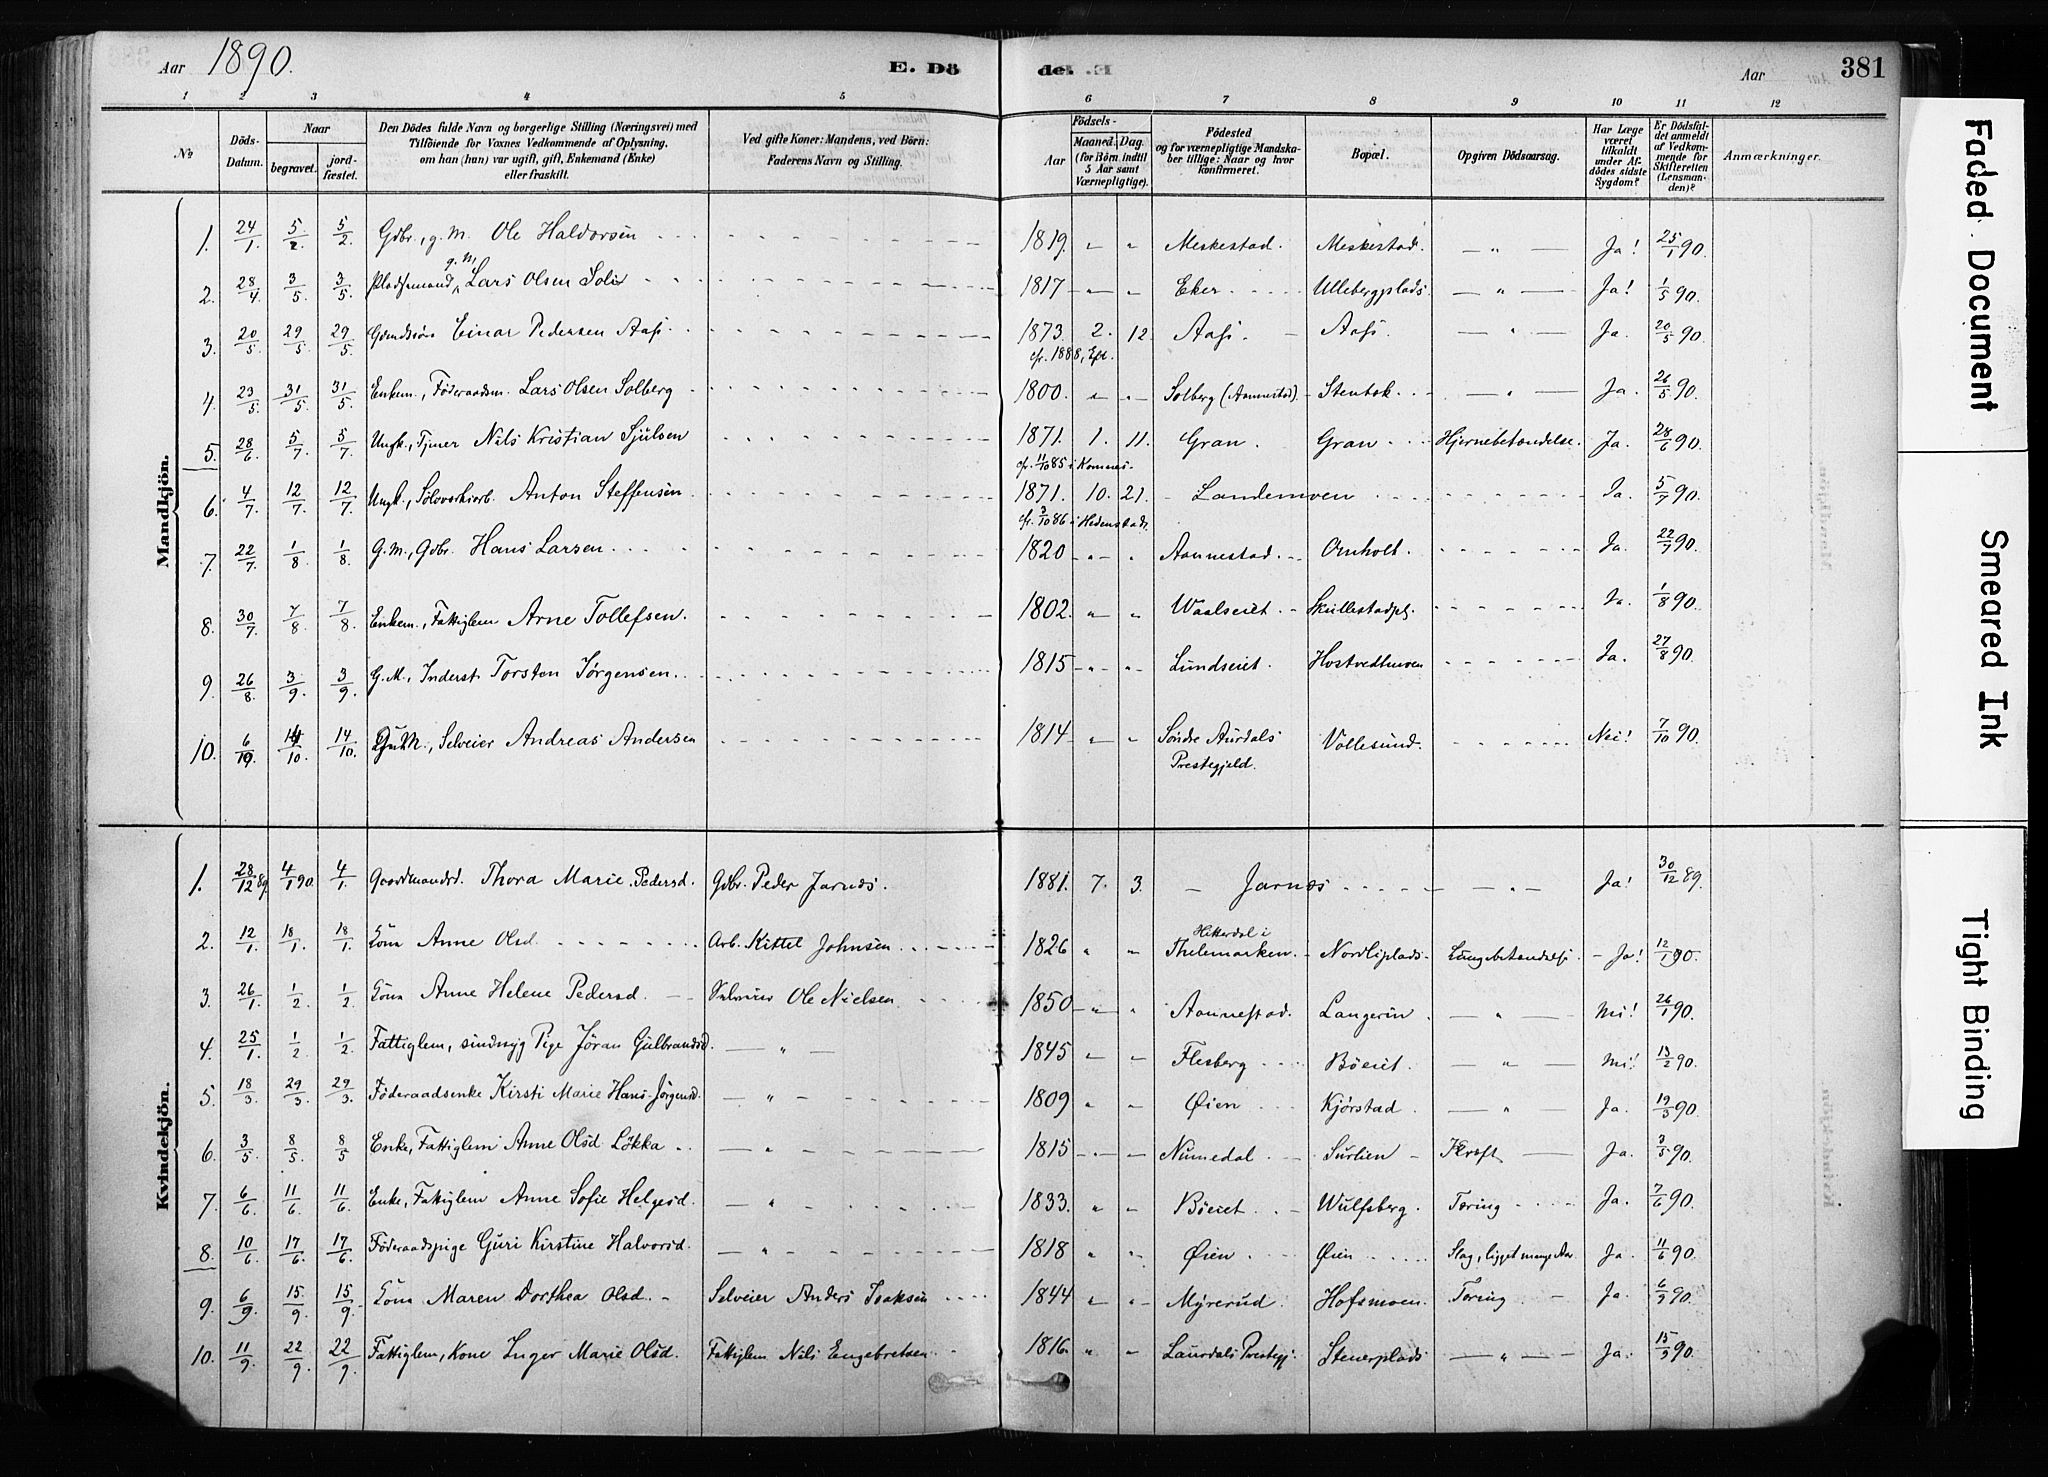 Aar 1890. E. Döde. Aar 381
1 2 3 4 5 6 7 8 9 10 11 12
No
Döds-Datum.
Naar
begravet. jordfæstet.
Den Dödes fulde Navn og borgerlige Stilling (Næringsvei) med
Tilföiende for Voxnes Vedkommende af Oplysning,
om han (hun) var ugift, gift, Enkemand (Enke)
eller fraskilt.
Ved gifte Koner: Mandens, ved Börn:
Faderens Navn og Stilling.
Födsels-
Aar Maaned. Dag.
(for Börn indtil
5 Aar samt
Værnepligtige).
Födested
og for værnepligtige Mandskaber tillige: Naar og hvor
konfirmeret.
Bopæl.
Opgiven Dödsaarsag.
Har Læge
været
tilkaldt
under Afdödes sidste
Sygdom?
Er Dödsfaldet anmeldt
af Vedkommende for
Skifteretten
(Lensmanden)?
Anmærkninger.
Mandkjön.
1. 24/1. 5/2. 5/2. Gdbr., g. M. Ole Haldorsen 1819. " " Meskestad. Meskestad. — " — Ja! 25/1 90.
2. 28/4 3/5. 3/5. Pladsemand, g. M. Lars Olsen Solie 1817 — " " Eker Ullebergplads. — " — Ja! 1/5 90.
3. 20/5 29/5. 29/5. Gdmdssøn Einar Pedersen Aass 1873. 2. 12. Aass. Aass. — " — Ja. 20/5 90.
cfr. 1888, Eft.
4. 23/5. 31/5. 31/5. Enkem., Føderaadsm. Lars Olsen Solberg 1800. " " Solberg (Aannestad). Stentok. — " — Ja. 26/5 90.
5. 28/6. 5/7. 5/7. Ungk., Tjener Nils Kristian Sjulsen 1871. 1. 11. Gran. Gran Hjernebetændelse. Ja. 28/6 90.
cfr. 11/10 85 i Komnes.
6. 4/7. 12/7 12/7. Ungk., Sølvverksarb. Anton Steffensen 1871. 10. 21. Landemoen Ja. 5/7 90.
cfr. 3/10 86 i Hedenstad.
7. 22/7. 1/8 1/8. G. M., Gdbr. Hans Larsen 1820 — " " Aannestad. Omholt. Ja. 22/7 90.
8. 30/7. 7/8. 7/8. Enkem., Fattiglem Arne Tollefsen. 1802. " " Waalseiet. Skullestadpl. Ja. 1/8 90.
9. 26/8. 3/9. 3/9. G. M., Inderst Torsten Jørgensen. 1815 — " " Lundseiet. Hostvedtmoen Ja. 27/8 90.
10. 6/10. 14/10. 14/10. M., Selveier Andreas Andersen 1814 — " " Søndre Aurdals Prestegjeld. Vollesund. Nei! 7/10 90.
Kvindekjön.
1. 28/12 89. 4/1 90. 4/1. Gaardmandsd. Thora Marie Pedersd. Gdbr. Peder Jarnes. 1881. 7. 3. — Jarnes — " — Ja! 30/12 89.
2. 12/1. 18/1. 18/1. Kona Anne Olsd. Arb. Kittel Johnsen 1826 " " Hitterdal i Thelemarken. Nordliplads Lungebetændelse — Ja! 12/1 90.
3. 26/1. 1/2. 1/2. Kona Anne Helene Pedersd. Selveier Ole Nielsen 1850 — " " Aannestad. Langerin — " — Nei! 26/1 90.
4. 25/1. 1/2. 1/2. Fattiglem, sindssyg Pige Jøran Gulbrandsd. — " — 1845 " " Flesberg Böeiet. — " — Nei! 13/2 90.
5. 18/3. 29/3. 29/3. Føderaadsenke Kirsti Marie Hans-Jørgensd. — " — 1809 " " Øien Kjørstad — " — Ja. 19/3 90.
6. 3/5. 8/5. 8/5 Enke, Fattiglem Anne Olsd Løkka — " — 1815 — " — Numedal. Surlien Kræft Ja. 3/5 90.
7. 6/6. 11/6. 11/6. Enke, Fattiglem Anne Sofie Helgesd. — " — 1833. " " Böeiet. Wulfsberg. Tæring Ja. 7/6 90.
8. 10/6. 17/6. 17/6. Føderaadspige Guri Kirstine Halvorsd. — " — 1818 " " Øien Øien Slag, ligget mange Aar. Ja. 11/6 90.
9. 6/9. 15/9. 15/9. Kona Maren Dorthea Olsd. — Selveier Anders Isaksen 1844 " " Myrerud Hofsmoen. Tæring — Ja. 6/9 90.
10. 11/9. 22/9. 22/9. Fattiglem, Kone Inger Marie Olsd. Fattiglem Nils Engebretsen 1816. " " Laurdals Prestegj. Stenerplads — " — Ja. 15/9 90.
Faded Document
Smeared Ink
Tight Binding